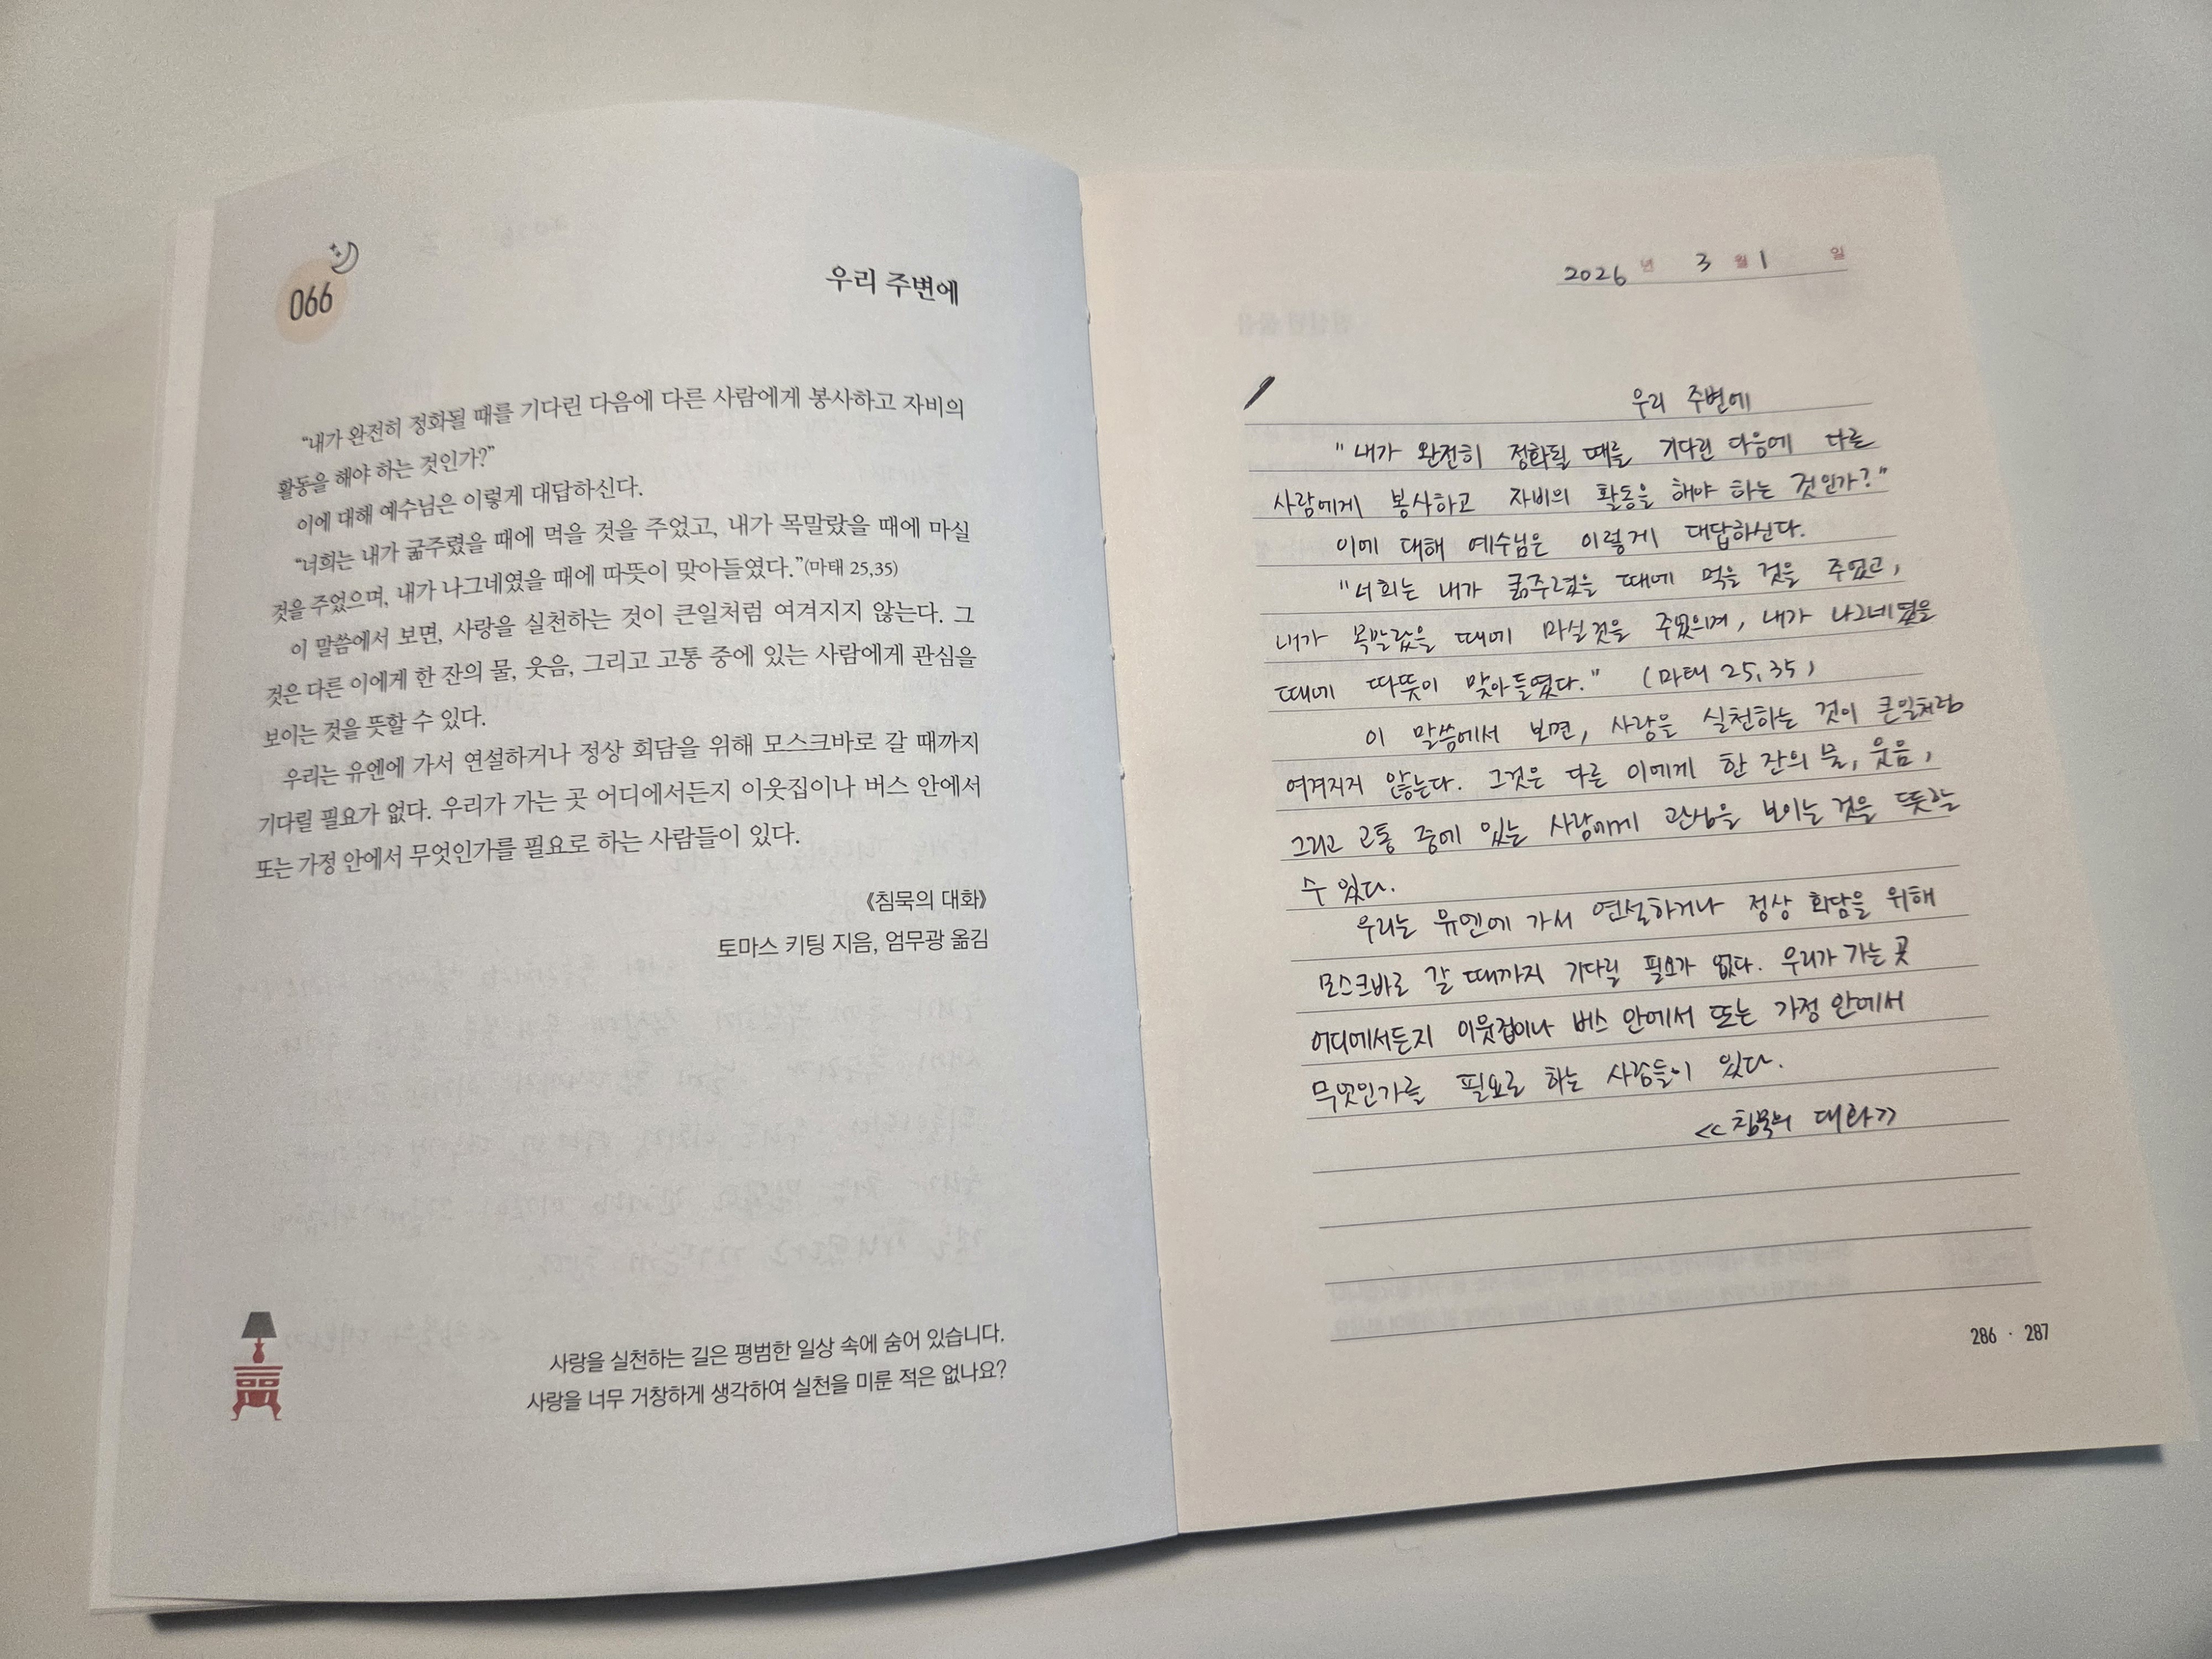 066
우리 주변에
“내가 완전히 정화될 때를 기다린 다음에 다른 사람에게 봉사하고 자비의
활동을 해야 하는 것인가?”
이에 대해 예수님은 이렇게 대답하신다.
“너희는 내가 굶주렸을 때에 먹을 것을 주었고, 내가 목말랐을 때에 마실
것을 주었으며, 내가 나그네였을 때에 따뜻이 맞아들였다.”(마태 25,35)
이 말씀에서 보면, 사랑을 실천하는 것이 큰일처럼 여겨지지 않는다. 그
것은 다른 이에게 한 잔의 물, 웃음, 그리고 고통 중에 있는 사람에게 관심을
보이는 것을 뜻할 수 있다.
우리는 유엔에 가서 연설하거나 정상 회담을 위해 모스크바로 갈 때까지
기다릴 필요가 없다. 우리가 가는 곳 어디에서든지 이웃집이나 버스 안에서
또는 가정 안에서 무엇인가를 필요로 하는 사람들이 있다.
《침묵의 대화》
토마스 키팅 지음, 엄무광 옮김
사랑을 실천하는 길은 평범한 일상 속에 숨어 있습니다.
사랑을 너무 거창하게 생각하여 실천을 미룬 적은 없나요?
2026 년 3 월 1 일
우리 주변에
"내가 완전히 정화될 때를 기다린 다음에 다른
사람에게 봉사하고 자비의 활동을 해야 하는 것인가?"
이에 대해 예수님은 이렇게 대답하신다.
"너희는 내가 굶주렸을 때에 먹을 것을 주었고,
내가 목말랐을 때에 마실것을 주었으며, 내가 나그네였을
때에 따뜻이 맞아들였다." (마태 25,35)
이 말씀에서 보면, 사랑을 실천하는 것이 큰일처럼
여겨지지 않는다. 그것은 다른 이에게 한 잔의 물, 웃음,
그리고 고통 중에 있는 사람에게 관심을 보이는 것을 뜻할
수 있다.
우리는 유엔에 가서 연설하거나 정상 회담을 위해
모스크바로 갈 때까지 기다릴 필요가 없다. 우리가 가는 곳
어디에서든지 이웃집이나 버스 안에서 또는 가정 안에서
무엇인가를 필요로 하는 사람들이 있다.
<<침묵의 대화>>
286 · 287